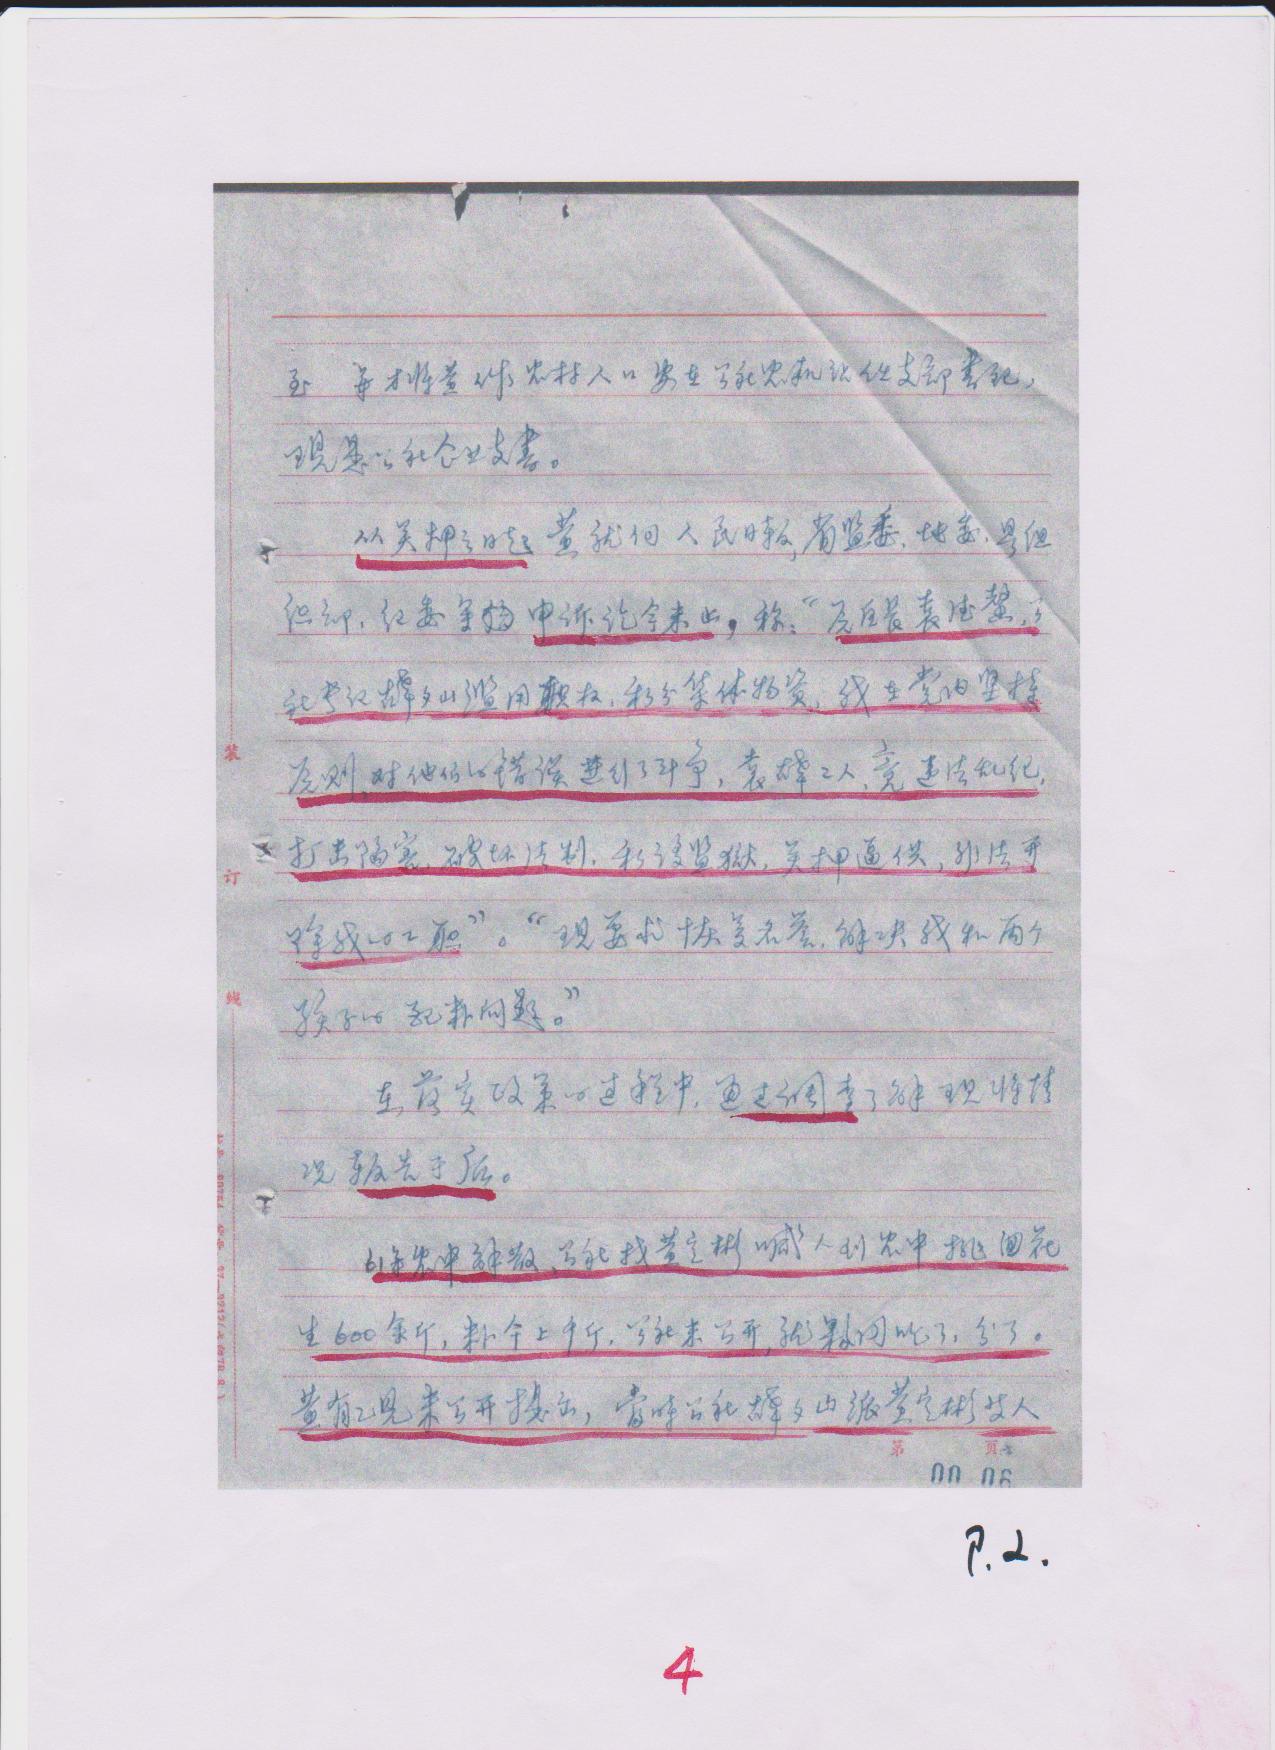 至　年才将黄作农村人口安在公社农机站任支部书纪，
现是公社企业支书。
从关押之日起黄就向人民日报，省监委、地委、县组
织部、纪委等 申诉讫今未止，称：“原区长袁法 ，公
社书记 夕山滥用职权，私分集体物资，我在党内坚持
原则，对他们的错误进行了斗争，袁 二人，竟违法乱纪，
打击陷害，破坏法制，私设监狱，关押逼供，非法开
除我的工职”。“现要求恢复名誉，解决我和两个
孩子的配粮问题。”
在落实政策的过程中，通过调查了解现将情
况报告于后。
61年农中解散，公社找黄定彬喊人到农中挑回花
生600余斤，粮个上千斤，公社未公开，就 同吃了，分了。
黄有己见来公开提出，当时公社 夕山派黄定彬支人
装
订
线
第　　页
00 06
P.2.
4